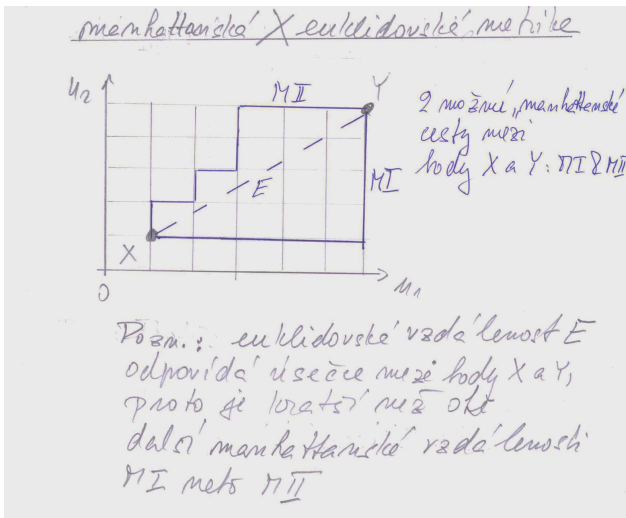 manhattanská X euklidovská metrika
u2
MII
Y
2 možné „manhattanské
cesty mezi
body X a Y: MI & MII
MI
E
X
0
u1
Pozn.: euklidovská vzdálenost E
odpovídá úsečce mezi body X a Y,
proto je kratší než obě
další manhattanské vzdálenosti
MI nebo MII